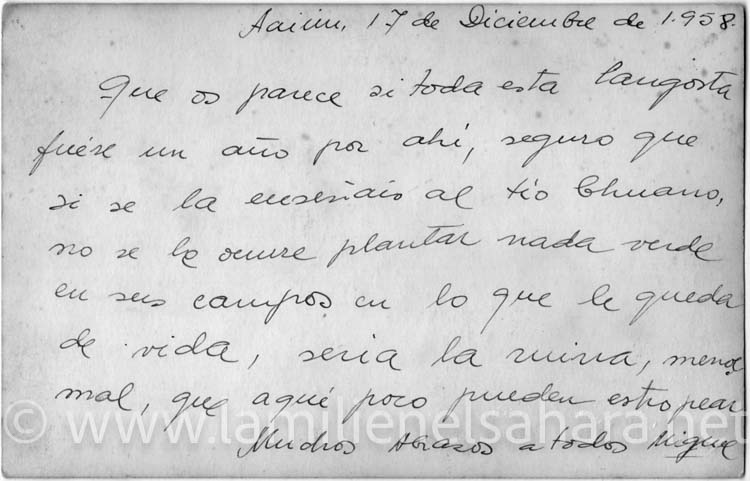 Aaiun, 17 de Diciembre de 1.958.
Que os parece si toda esta langosta
fuése un año por ahí, seguro que
si se la enseñais al tío Chuano,
no se le ocurre plantar nada verde
en sus campos en lo que le queda
de vida, seria la ruina, menos
mal, que aquí poco pueden estropear
Muchos abrazos a todos Miguel
© www.lamilienelsahara.net